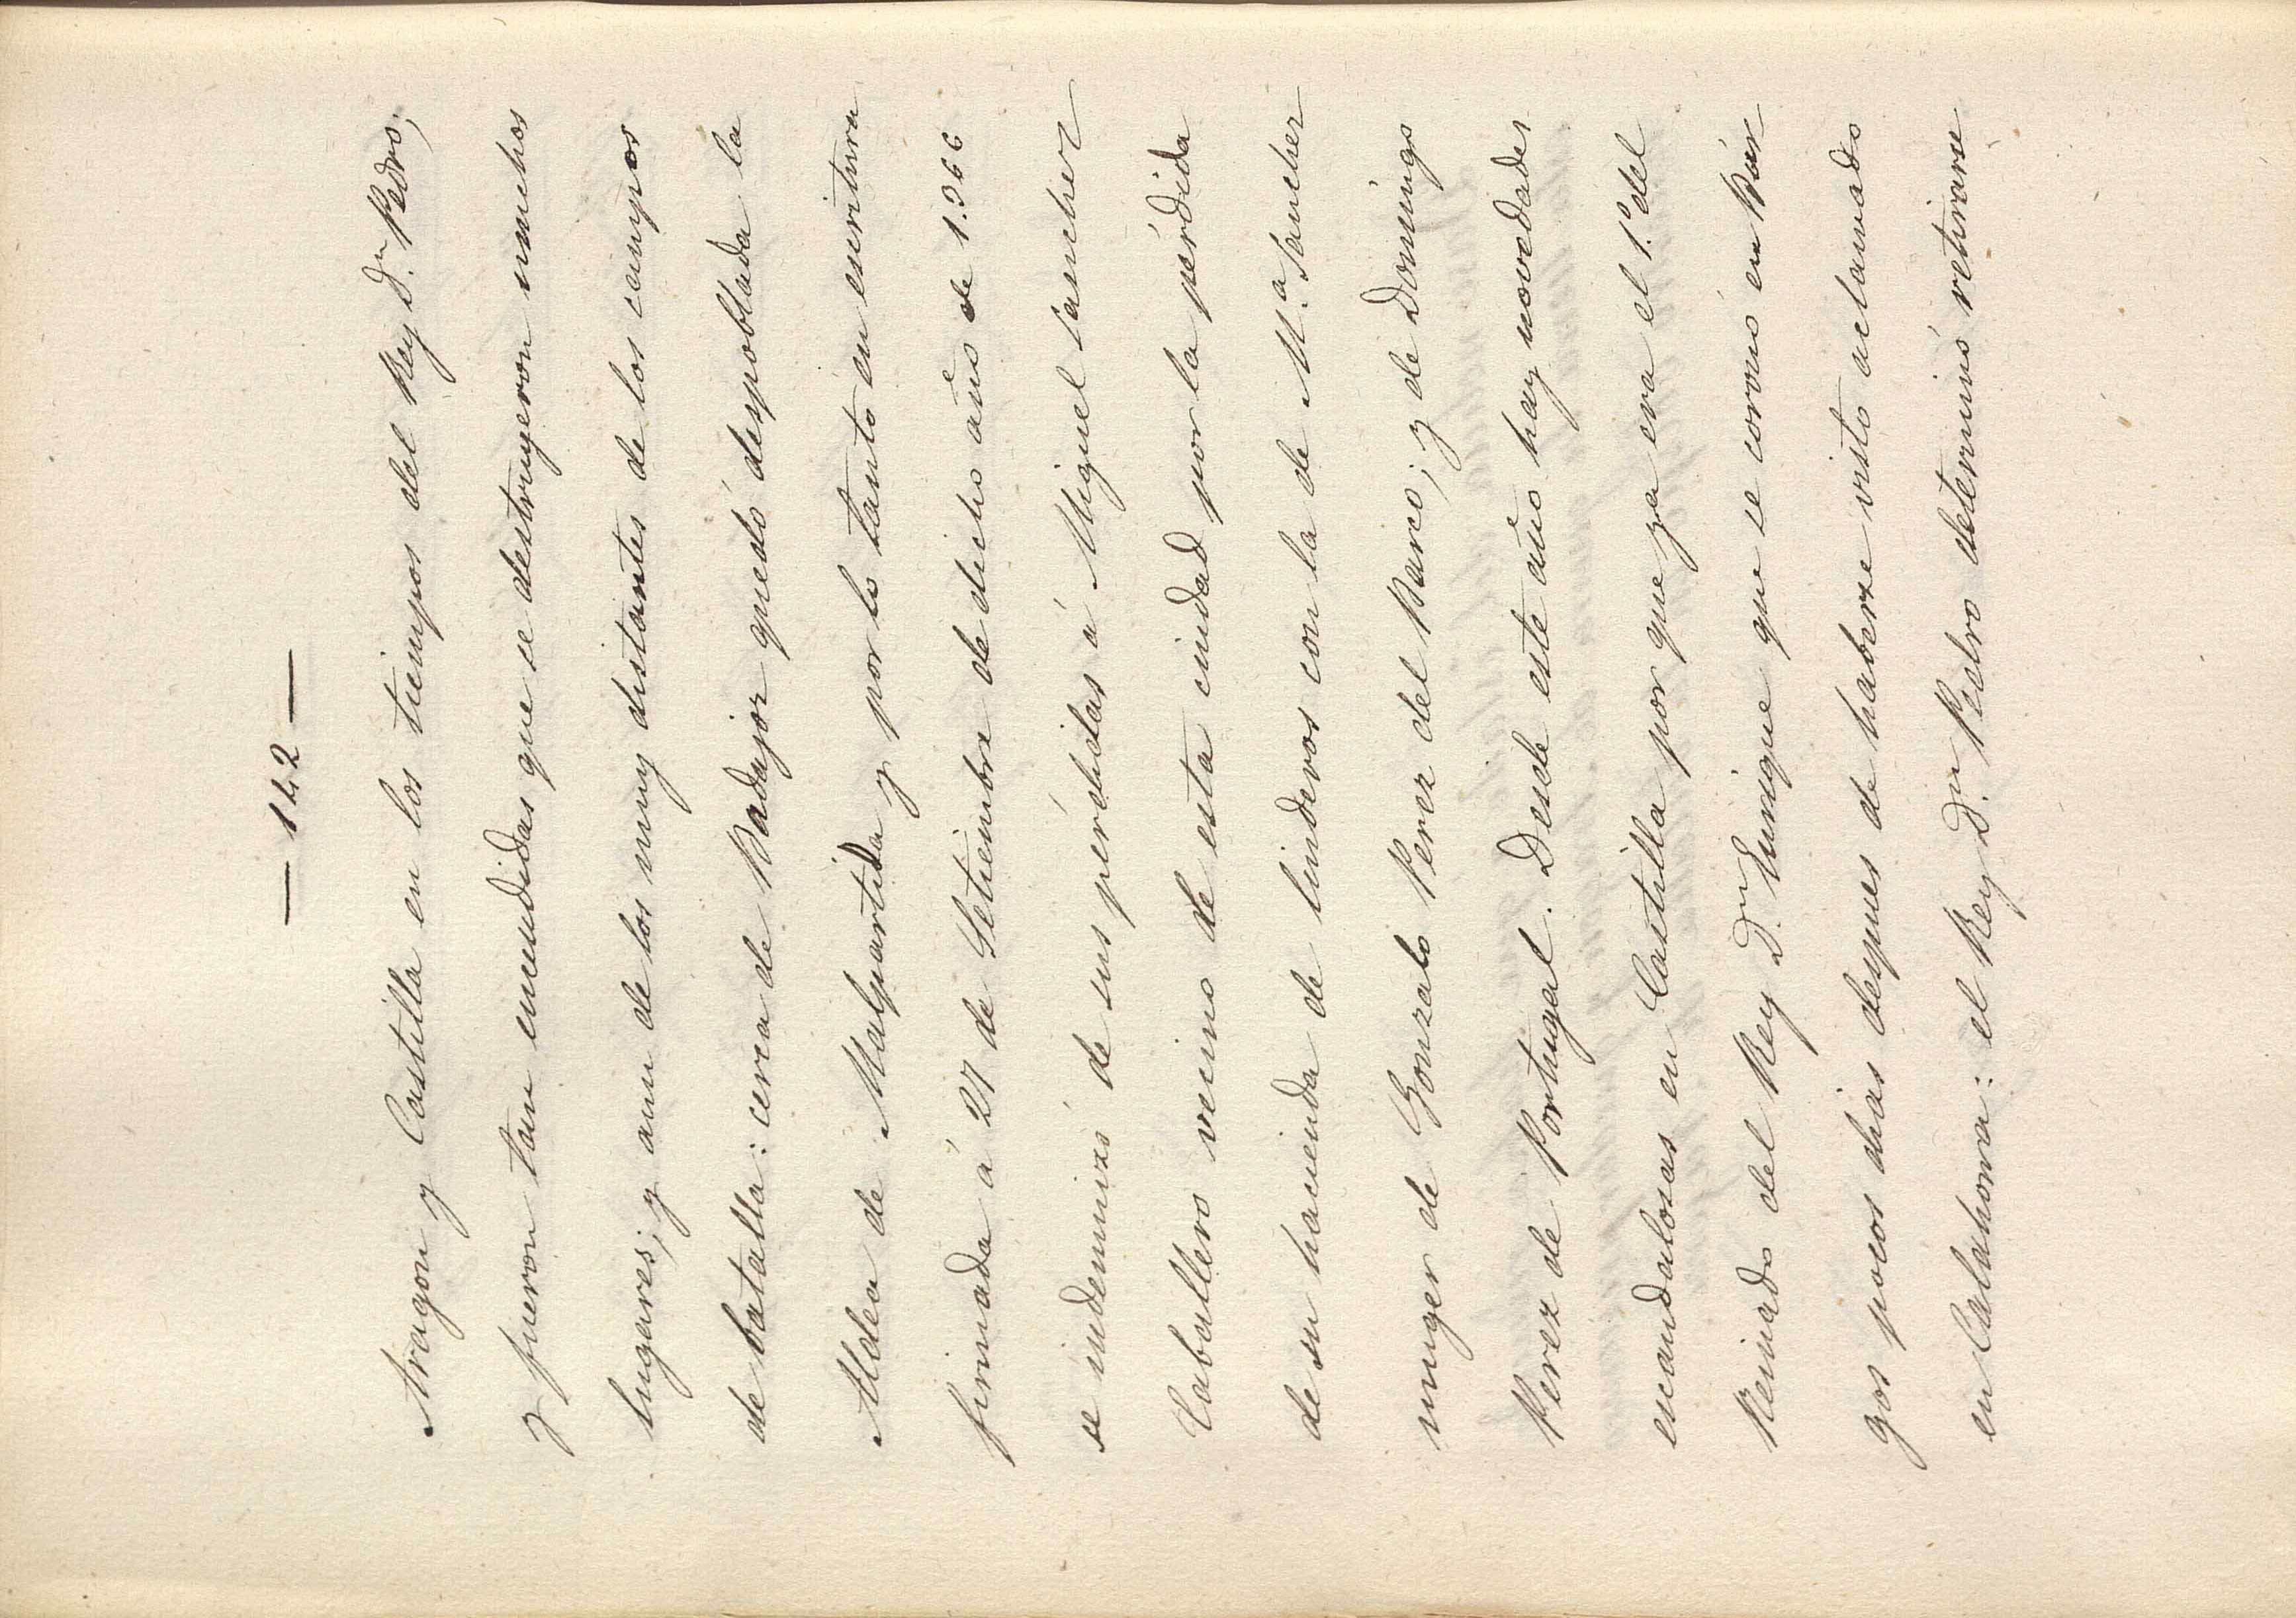 — 142 —
Aragon y Castilla en los tiempos del Rey D.ⁿ Pedro;
y fueron tan encendidas que se destruyeron muchos
lugares; y aun de los muy distantes de los campos
de batalla: cerca de Badajoz quedó despoblada la
Aldea de Malpartida y por lo tanto en escritura
firmada á 27 de Setiembre de dicho año de 1.366
se indemnizó de sus pérdidas á Miguel Sanchez
Caballero vecino de esta ciudad por la pérdida
de su hacienda de linderos con la de M.ª Sanchez
muger de Gonzalo Perez del Barco; y de Domingo
Perez de Portugal. Desde este año hay novedades
escandalosas en Castilla por que ya era el 1.º del
Reinado del Rey D.ⁿ Enrique que se coronó en Búr
gos pocos dias despues de haberse visto aclamado
en Calahorra: el Rey D.ⁿ Pedro determinó retirarse